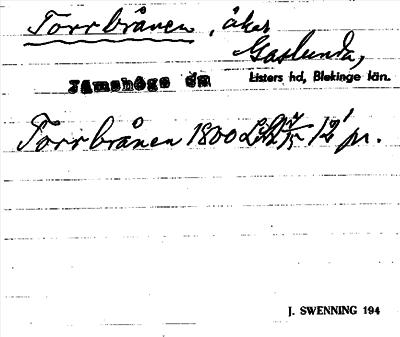 Torrbrånen, åker
Gaslunda,
Jämshögs sn Listers hd, Blekinge län.
Torrbrånen 1800 pr.
J. SWENNING 194